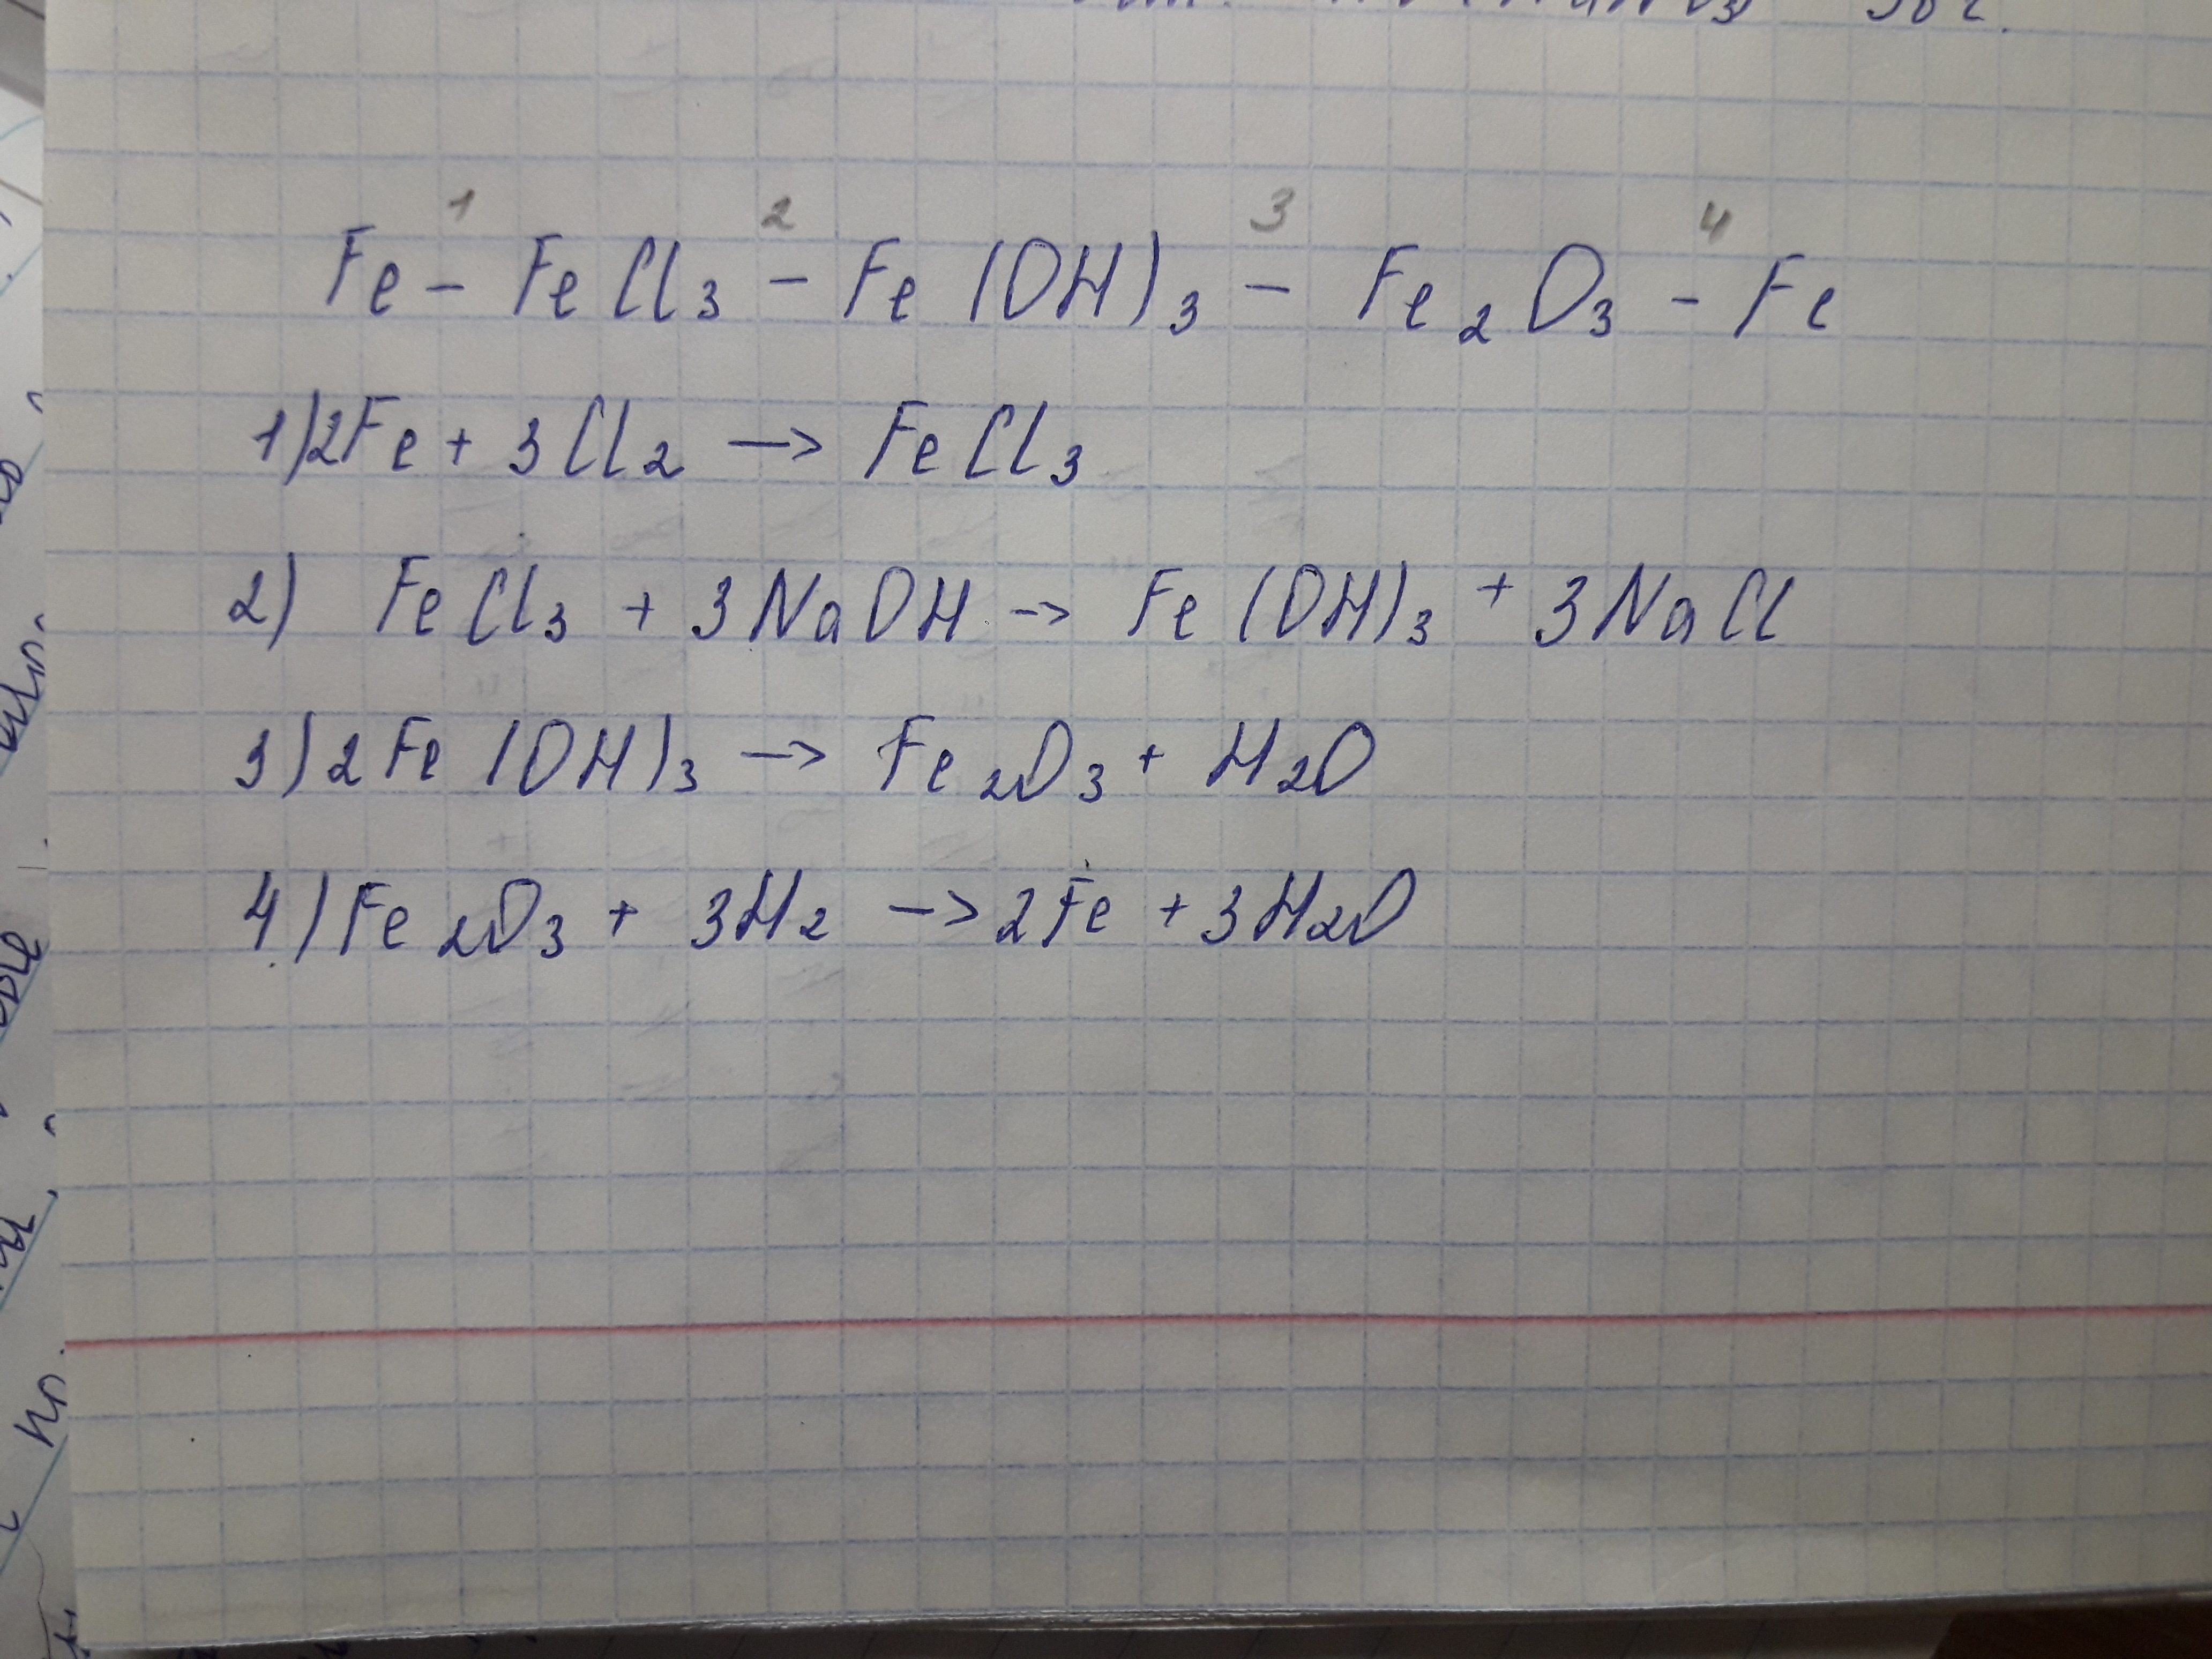 1 2 3 4
Fe - FeCl₃ - Fe(OH)₃ - Fe₂O₃ - Fe
1) 2Fe + 3Cl₂ → FeCl₃
2) FeCl₃ + 3NaOH → Fe(OH)₃ + 3NaCl
3) 2Fe(OH)₃ → Fe₂O₃ + H₂O
4) Fe₂O₃ + 3H₂ → 2Fe + 3H₂O